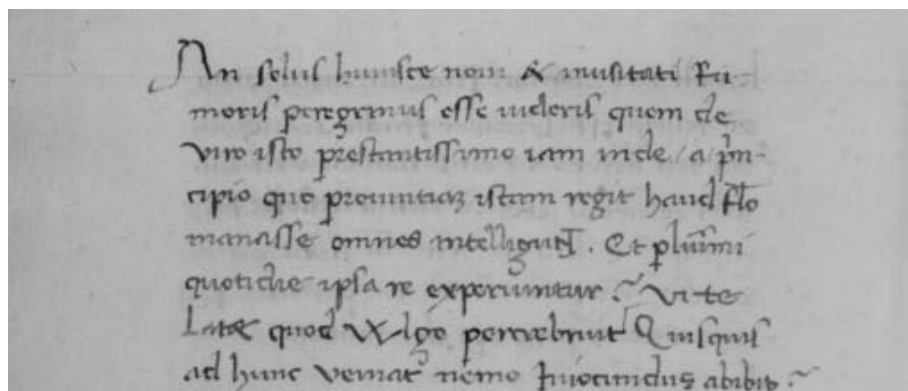 An solus huiusce noui & inusitati Ru-
moris peregrinus esse uideris quem de
viro isto prestantissimo iam inde a prin-
cipio quo prouintiaȝ istam regit haud
manasse omnes intelligūt. Et plurimi
quotidie ipsa re experiuntur Vi te
Latæ quod Wlgo percrebruit Quisquis
ad hunc veniat nemo Iniocundus abibit